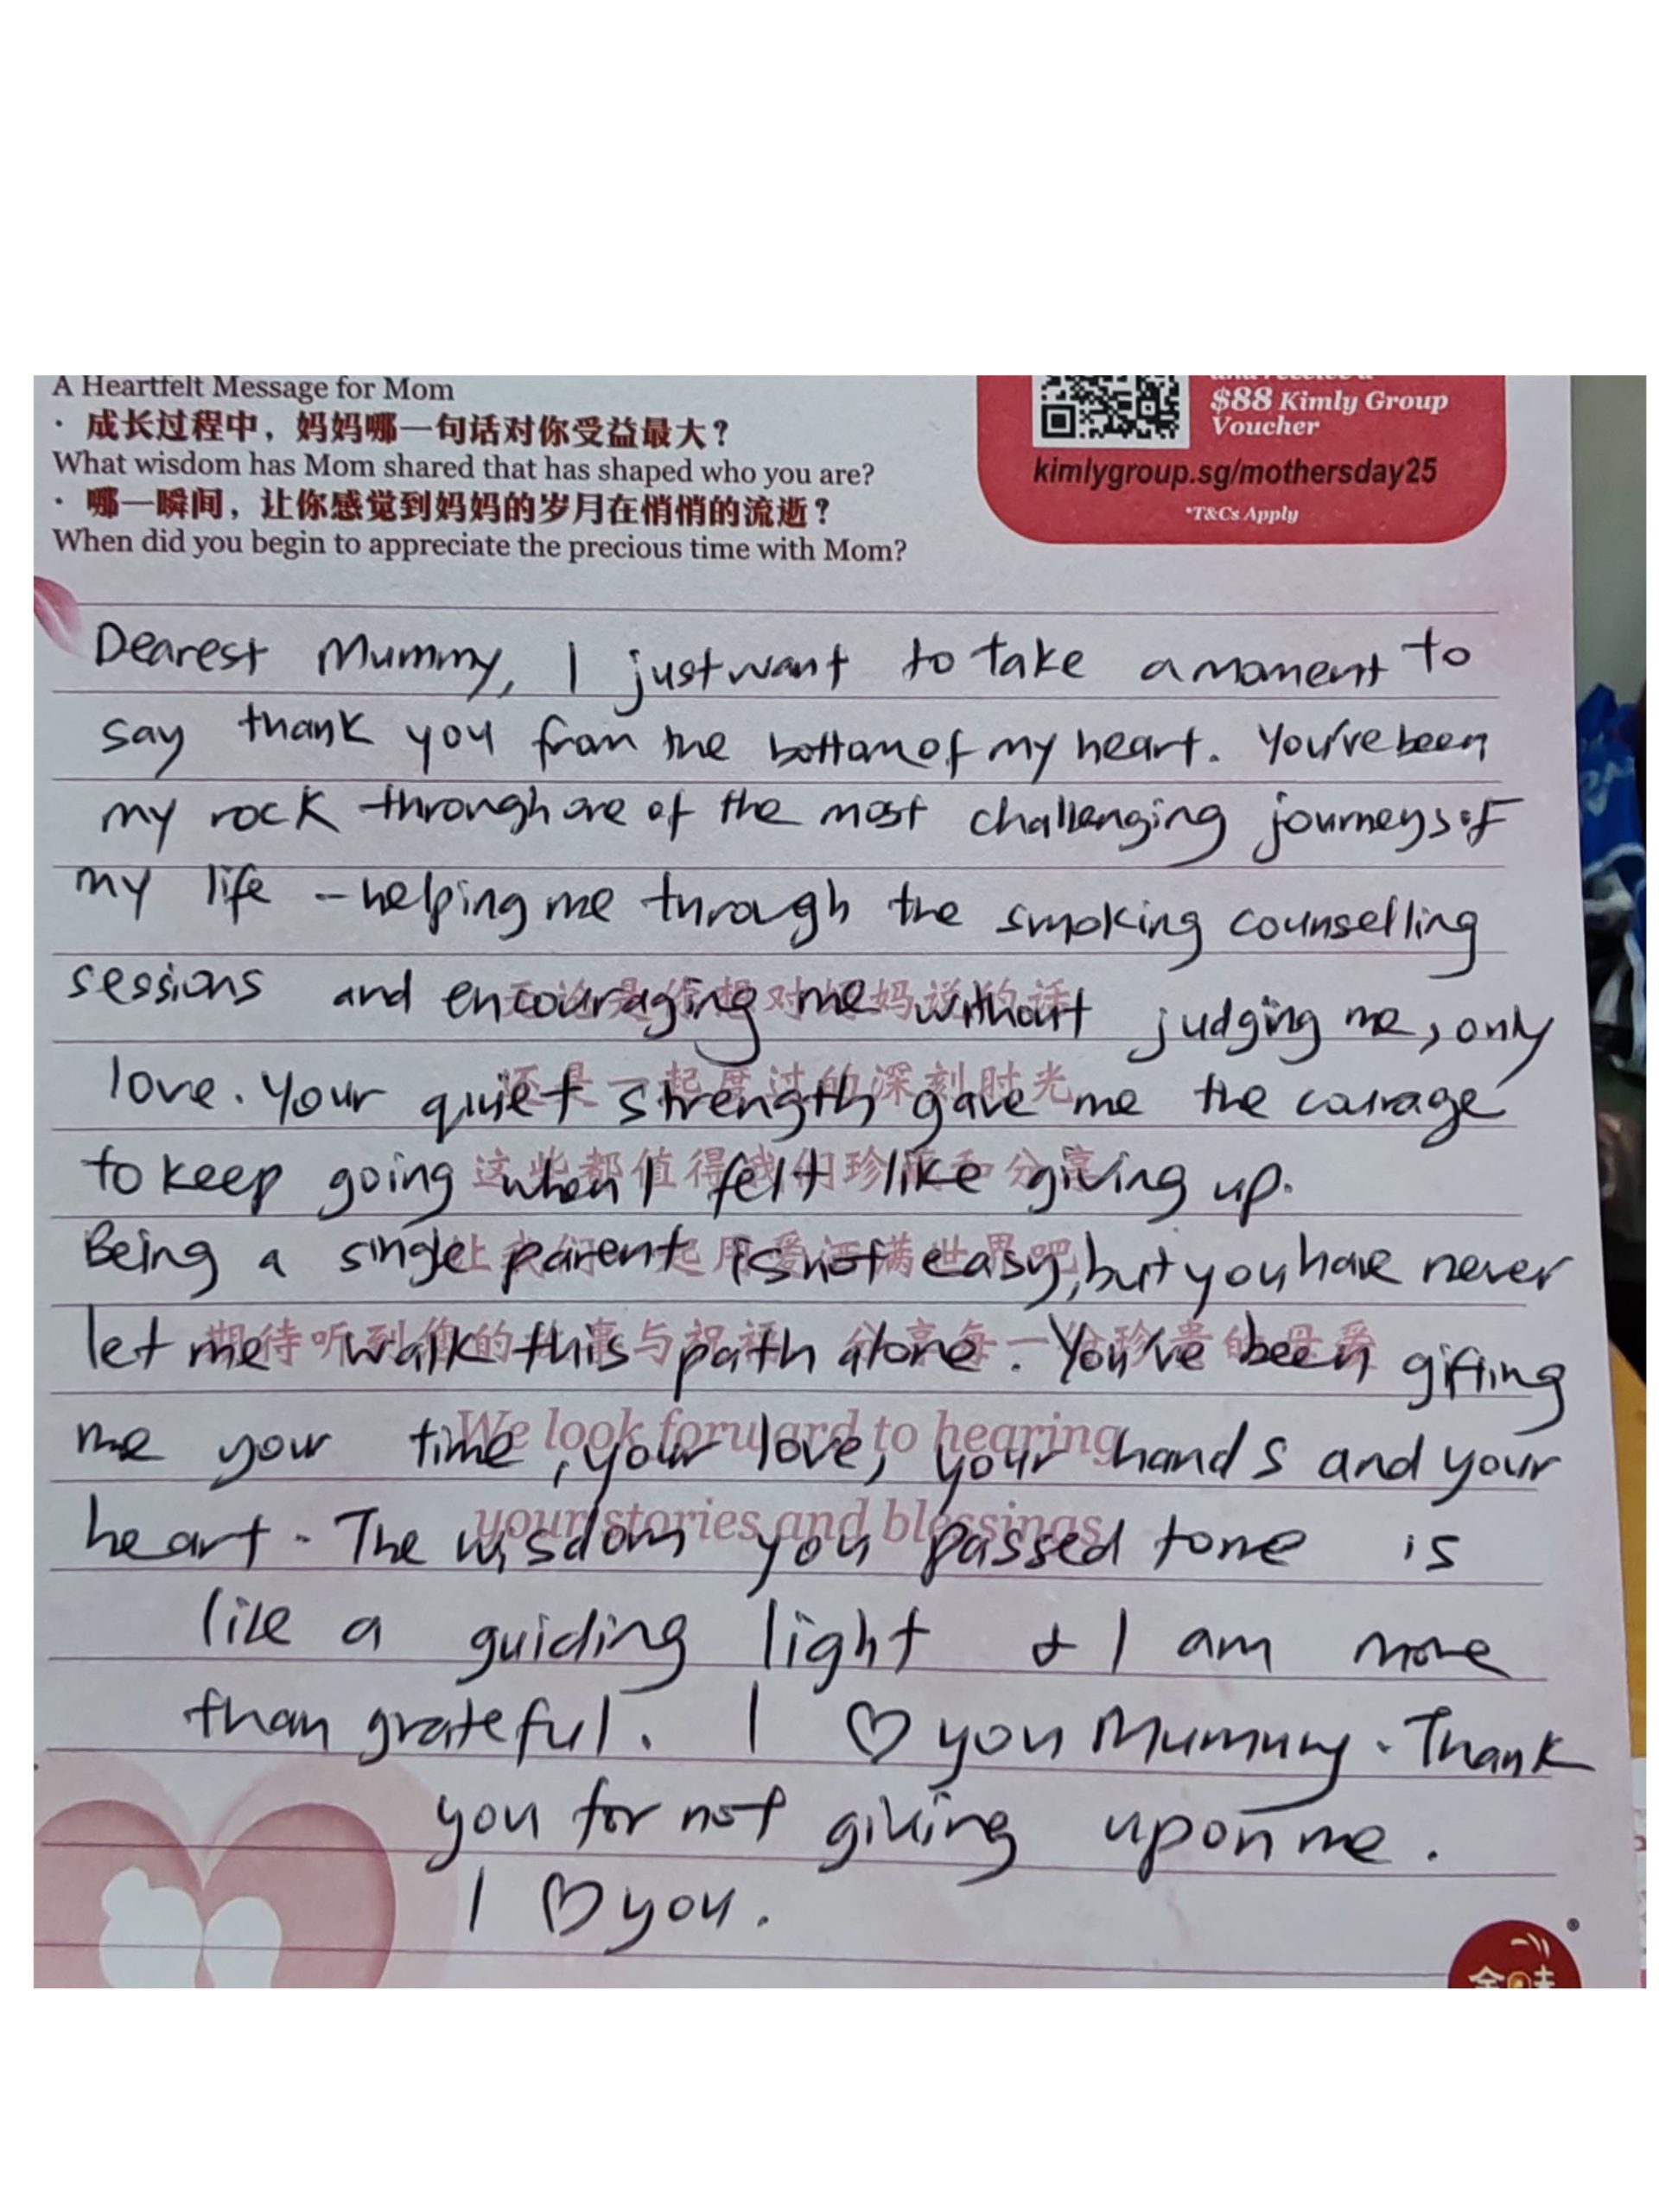 A Heartfelt Message for Mom
· 成长过程中，妈妈哪一句话对你受益最大？
What wisdom has Mom shared that has shaped who you are?
· 哪一瞬间，让你感觉到妈妈的岁月在悄悄的流逝？
When did you begin to appreciate the precious time with Mom?
and receive a
$88 Kimly Group
Voucher
kimlygroup.sg/mothersday25
*T&Cs Apply
Dearest Mummy, I just want to take a moment to
say thank you from the bottom of my heart. You've been
my rock through one of the most challenging journeys of
my life - helping me through the smoking counselling
sessions and encouraging me without judging me, only
love. Your quiet strength gave me the courage
to keep going when I felt like giving up.
Being a single parent is not easy, but you have never
let me walk this path alone. You've been gifting
me your time, your love, your hands and your
heart. The wisdom you passed to me is
like a guiding light & I am more
than grateful. I ♡ you Mummy. Thank
you for not giving up on me.
I ♡ you.
还是一起度过的深刻时光
这些都值得我们珍惜和分享
让我们一起用爱洒满世界吧
We look forward to hearing
your stories and blessings
金味
®